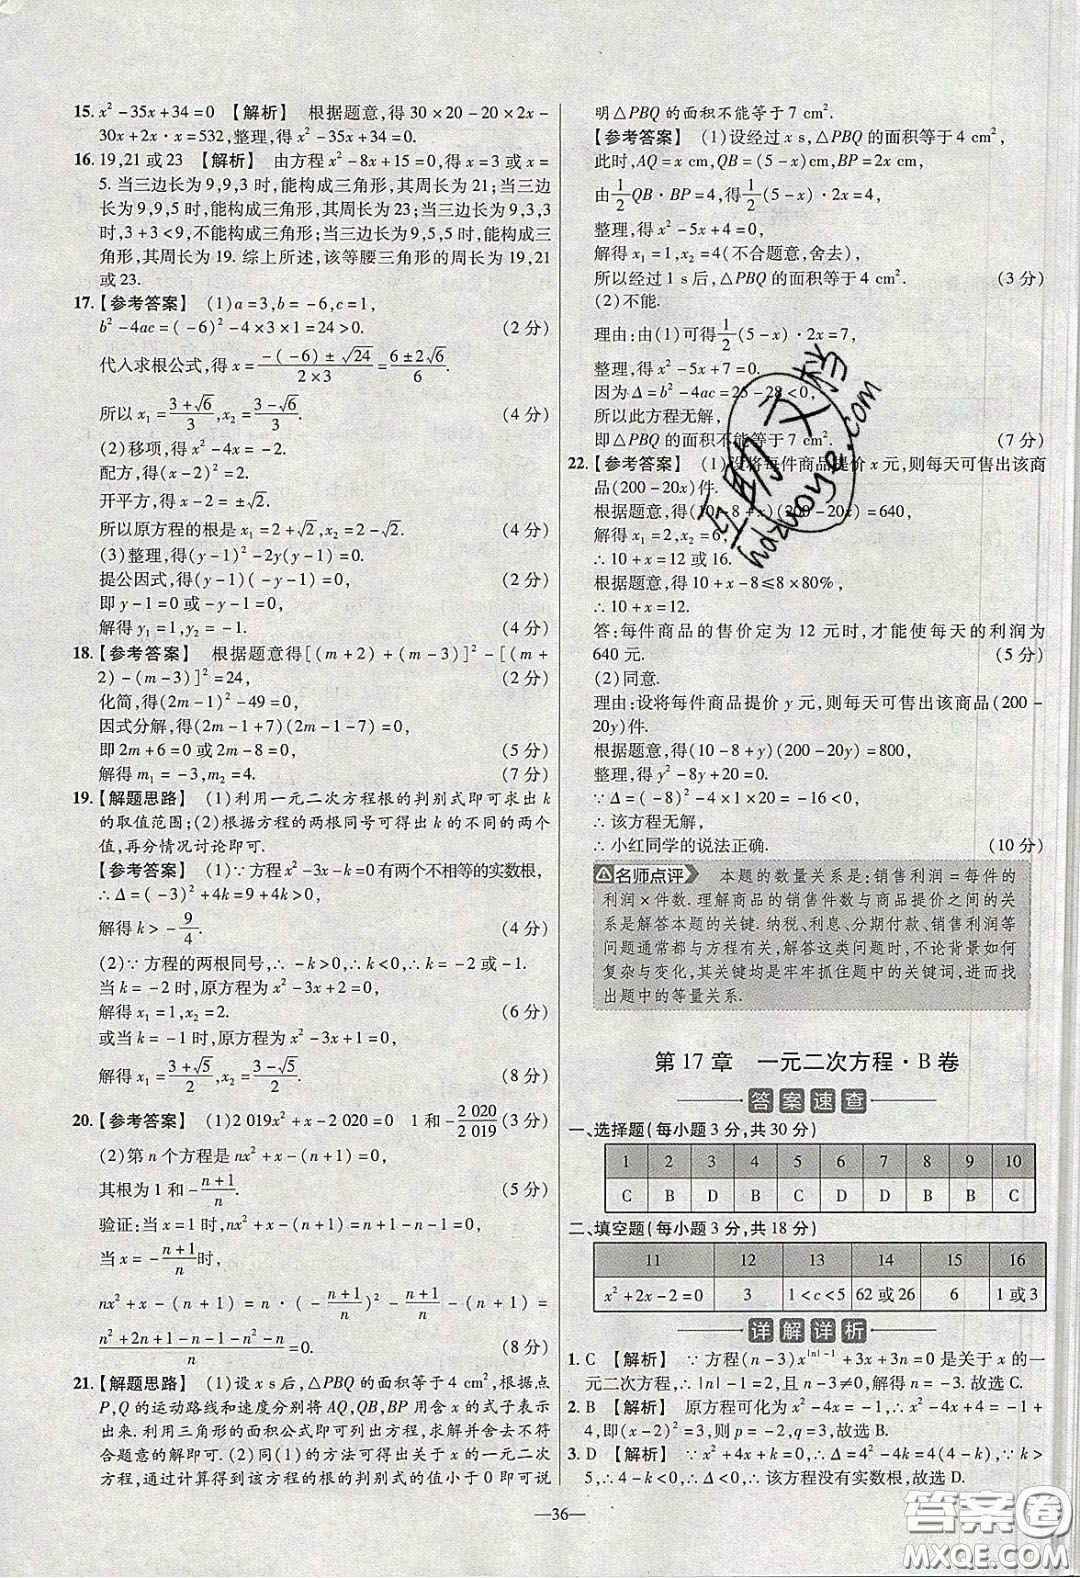 15. x²-35x+34=0 【解析】 根据题意,得 30×20-20×2x-
30x+2x·x=532,整理,得 x²-35x+34=0.
16. 19,21 或 23 【解析】 由方程 x²-8x+15=0,得 x=3 或 x=
5. 当三边长为 9,9,3 时,能构成三角形,其周长为 21;当三边
长为 9,9,5 时,能构成三角形,其周长为 23;当三边长为 9,3,3
时,3+3<9,不能构成三角形;当三边长为 9,5,5 时,能构成三
角形,其周长为 19. 综上所述,该等腰三角形的周长为 19,21
或 23.
17.【参考答案】 (1)a=3,b=-6,c=1,
b²-4ac=(-6)²-4×3×1=24>0. (2 分)
代入求根公式,得 x=\frac{-(-6)±√24}{2×3}=\frac{6±2√6}{6}.
所以 x₁=\frac{3+√6}{3},x₂=\frac{3-√6}{3}. (4 分)
(2)移项,得 x²-4x=-2.
配方,得(x-2)²=2.
开平方,得 x-2=±√2.
所以原方程的根是 x₁=2+√2,x₂=2-√2. (4 分)
(3)整理,得(y-1)²-2y(y-1)=0.
提公因式,得(y-1)(-y-1)=0, (2 分)
即 y-1=0 或-y-1=0,
解得 y₁=1,y₂=-1. (4 分)
18.【参考答案】 根据题意得[(m+2)+(m-3)]²-[(m+
2)-(m-3)]²=24, (2 分)
化简,得(2m-1)²-49=0.
因式分解,得(2m-1+7)(2m-1-7)=0,
即 2m+6=0 或 2m-8=0, (5 分)
解得 m₁=-3,m₂=4. (7 分)
19.【解题思路】 (1)利用一元二次方程根的判别式即可求出 k
的取值范围;(2)根据方程的两根同号可得出 k 的不同的两个
值,再分情况讨论即可.
【参考答案】 (1)∵方程 x²-3x-k=0 有两个不相等的实数根,
∴Δ=(-3)²+4k=9+4k>0,
解得 k>-\frac{9}{4}. (4 分)
(2)∵方程的两根同号,∴-k>0,∴k=-2 或-1.
当 k=-2 时,原方程为 x²-3x+2=0,
解得 x₁=1,x₂=2. (6 分)
或当 k=-1 时,原方程为 x²-3x+1=0,
解得 x₁=\frac{3+√5}{2},x₂=\frac{3-√5}{2}. (8 分)
20.【参考答案】 (1)2 019x²+x-2 020=0 1 和-\frac{2 020}{2 019}(3 分)
(2)第 n 个方程是 nx²+x-(n+1)=0,
其根为 1 和-\frac{n+1}{n}. (5 分)
验证:当 x=1 时,nx²+x-(n+1)=n+1-(n+1)=0,
当 x=-\frac{n+1}{n}时,
nx²+x-(n+1)=n·(-\frac{n+1}{n})²-\frac{n+1}{n}-(n+1)=
\frac{n²+2n+1-n-1-n²-n}{n}=0. (8 分)
21.【解题思路】 (1)设 x s后,△PBQ 的面积等于 4 cm²,根据点
P,Q 的运动路线和速度分别将 AQ,QB,BP 用含 x 的式子表示
出来.利用三角形的面积公式即可列出方程,求解并舍去不符
合题意的解即可.(2)同(1)的方法可得出关于 x 的一元二次
方程,通过计算得到该方程的根的判别式的值小于 0 即可说
明△PBQ 的面积不能等于 7 cm².
【参考答案】 (1)设经过 x s,△PBQ 的面积等于 4 cm²,
此时,AQ=x cm,QB=(5-x)cm,BP=2x cm,
由\frac{1}{2}QB·BP=4,得\frac{1}{2}(5-x)·2x=4,
整理,得 x²-5x+4=0,
解得 x₁=1,x₂=4(不合题意,舍去),
所以经过 1 s 后,△PBQ 的面积等于 4 cm². (3 分)
(2)不能.
理由:由(1)可得\frac{1}{2}(5-x)·2x=7,
整理,得 x²-5x+7=0.
因为 Δ=b²-4ac=25-28<0,
所以此方程无解,
即△PBQ 的面积不能等于 7 cm². (7 分)
22.【参考答案】 (1)设将每件商品提价 x 元,则每天可售出该商
品(200-20x)件.
根据题意,得(10-8+x)(200-20x)=640,
解得 x₁=2,x₂=6,
∴10+x=12 或 16.
根据题意,得 10+x-8≤8×80%,
∴10+x=12.
答:每件商品的售价定为 12 元时,才能使每天的利润为
640 元. (5 分)
(2)同意.
理由:设将每件商品提价 y 元,则每天可售出该商品(200-
20y)件.
根据题意,得(10-8+y)(200-20y)=800,
整理,得 y²-8y+20=0.
∵Δ=(-8)²-4×1×20=-16<0,
∴该方程无解,
∴小红同学的说法正确. (10 分)
名师点评 本题的数量关系是:销售利润=每件的
利润×件数.理解商品的销售件数与商品提价之间的关
系是解答本题的关键.纳税、利息、分期付款、销售利润等
问题通常都与方程有关,解答这类问题时,不论背景如何
复杂与变化,其关键均是牢牢抓住题中的关键词,进而找
出题中的等量关系.
第 17 章 一元二次方程·B 卷
答案速查
一、选择题(每小题 3 分,共 30 分)
1 2 3 4 5 6 7 8 9 10
C B D B C D D B B C
二、填空题(每小题 3 分,共 18 分)
11 12 13 14 15 16
x²+2x-2=0 3 1<c<5 62 或 26 6 1 或 3
详解详析
1. C 【解析】 ∵方程(n-3)x^{|n|-1}+3x+3n=0 是关于 x 的一
元二次方程,∴|n|-1=2,且 n-3≠0,解得 n=-3,故选 C.
2. B 【解析】 原方程可化为 x²-4x=-1,∴x²-4x+4=-1+
4,即(x-2)²=3,则 p=-2,q=3,故选 B.
3. D 【解析】 ∵x²+4x+k=0,∴Δ=4²-4k=4(4-k),∵k>
5,∴4-k<0,∴Δ<0,∴该方程没有实数根,故选 D.
—36—
互助文档
hdzuoye.com
答案圈
MXQE.COM